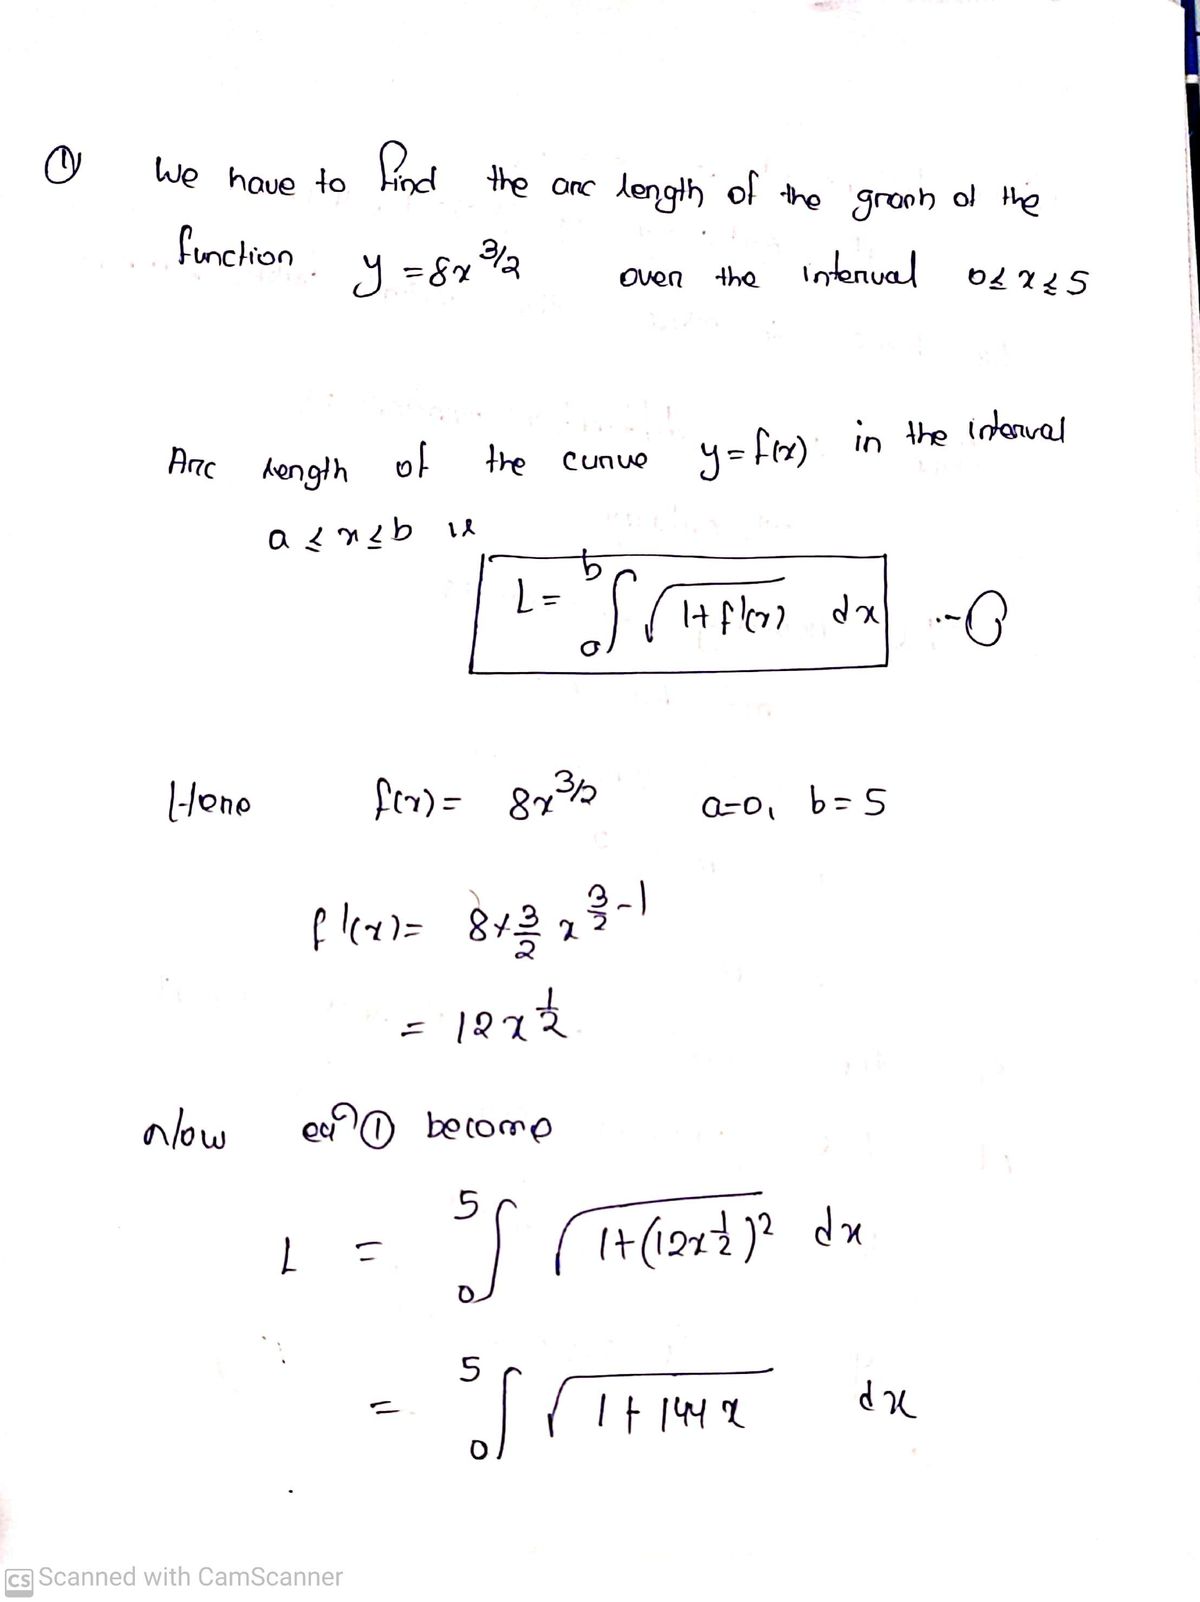 ① We have to find the arc length of the graph of the
function y = 8x^3/2 over the interval 0≤x≤5
Arc length of the curve y=f(x) in the interval
a≤x≤b is
L = ∫_a^b √(1+f'(x)) dx --①
Here f(x) = 8x^3/2 a=0, b=5
f'(x) = 8×3/2 x^(3/2-1)
= 12x^1/2
Now eqn ① become
L = ∫_0^5 √(1+(12x^1/2)^2) dx
= ∫_0^5 √(1+144x) dx
CS Scanned with CamScanner